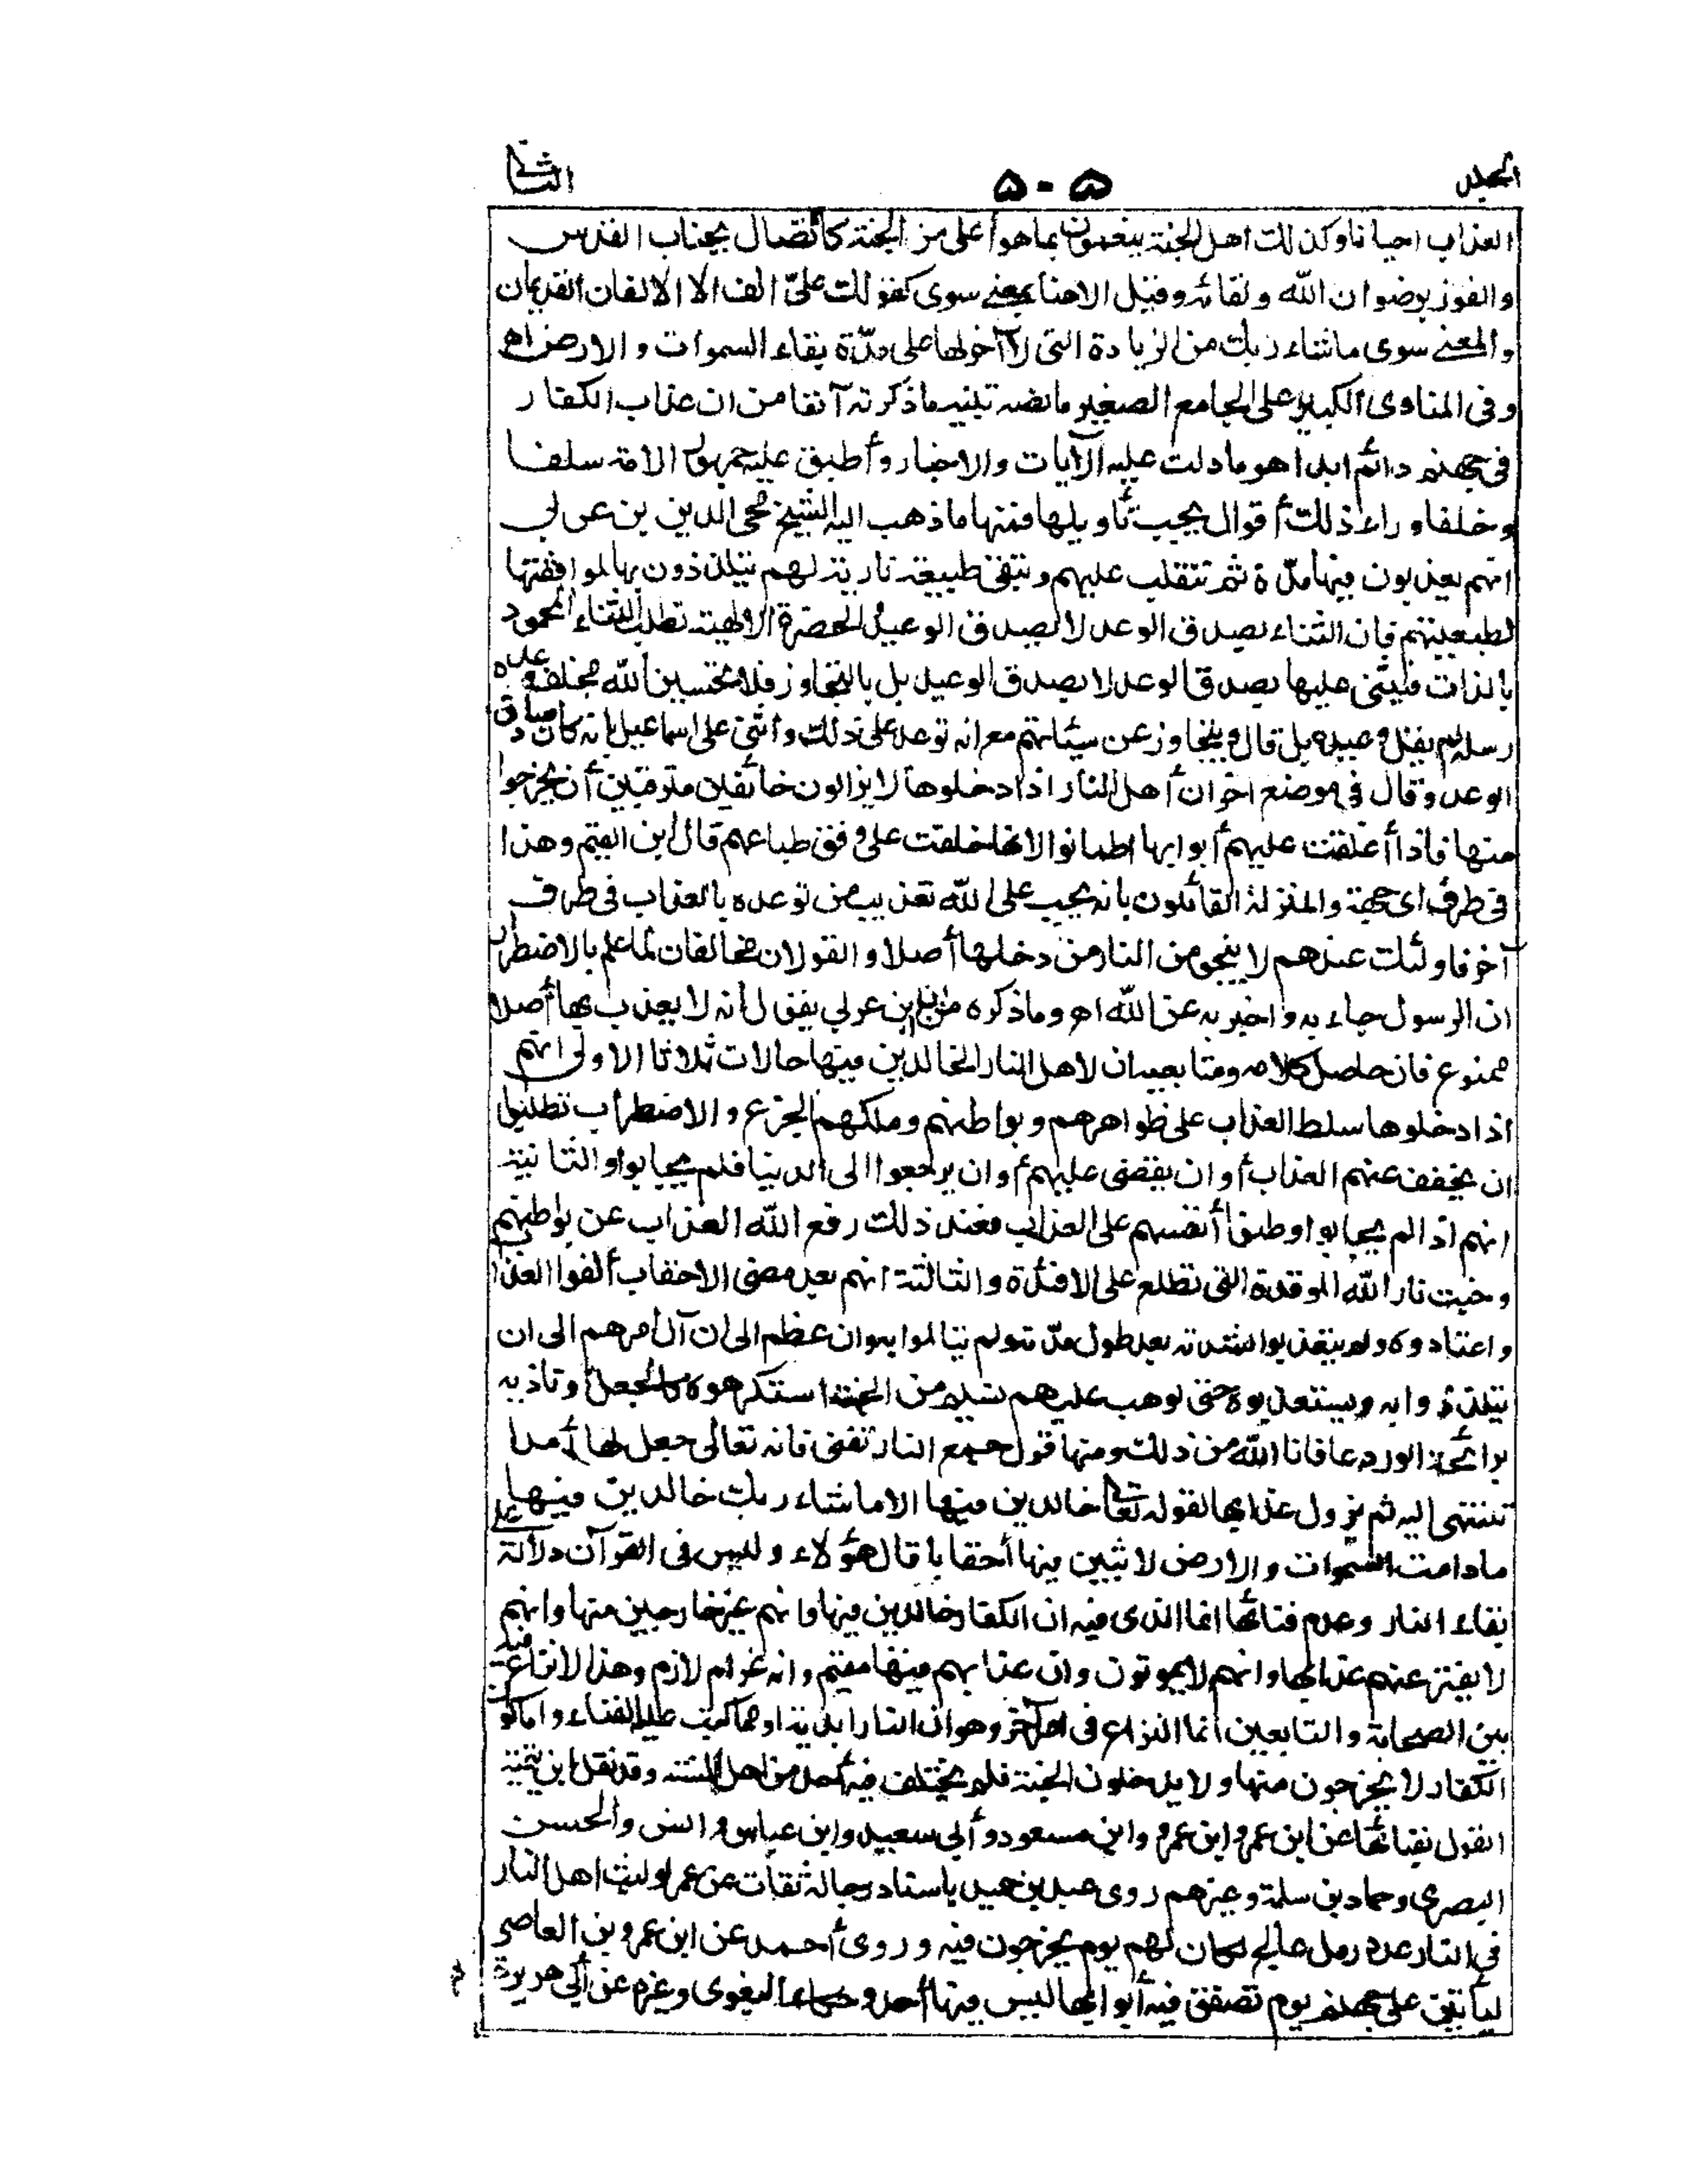 المجلد ٥٠٥ الثاني
العذاب احيانا وكذلك اهل الجنة ينعمون بما هو أعلى من الجنة كاتصال بجناب القدس
والفوز برضوان الله ولقائه وقيل الا هنا بمعنے سوى كقولك علىّ الف الا الالفان القديمان
والمعنے سوى ماشاء ربك من الزيادة التى لا آخر لها على مدّة بقاء السموات والارض اھ
وفى المناوى الكبير على الجامع الصغير ما نصه تنبيه ما ذكرته آنفا من ان عذاب الكفار
فى جهنم دائم ابدا هو ما دلت عليه الآيات والاخبار وأطبق عليه جمهور الامة سلفا
وخلفا وراء ذلك أقوال يجب تأويلها فمنها ما ذهب اليه الشيخ محى الدين بن عربي
انهم يعذبون فيها مدّة ثم تنقلب عليهم وتبقى طبيعة نارية لهم يتلذذون بها لموافقتها
لطبعيتهم فان الثناء بصدق الوعد لا بصدق الوعيد والحضرة الالهية تطلب الثناء المحمود
بالذات فيثنى عليها بصدق الوعد لا بصدق الوعيد بل بالتجاوز فلا تحسبن الله مخلف وعده
رسله لم يقل وعيده بل قال ويتجاوز عن سيئاتهم مع انه توعد على ذلك وأثنى على اسماعيل بانه كان صادق
الوعد وقال فى موضع اخر ان أهل النار اذا دخلوها لا يزالون خائفين مترقبين أن يخرجوا
منها فاذا أغلقت عليهم أبوابها اطمانوا لانها خلقت على وفق طباعهم قال ابن القيم وهذا
فى طرف اى جهة والمعتزلة القائلون بانه يجب على الله تعذيب من توعده بالعذاب فى طرف
آخر فاولئك عندهم لا ينجو من النار من دخلها أصلا والقولان مخالفان لما علم بالاضطرار
ان الرسول جاء به واخبر به عن الله اھ وما ذكره من ان ابن عربي يقول أنه لا يعذب بها أصلا
ممنوع فان حاصل كلامه ومتابعيه ان لاهل النار الخالدين فيها حالات ثلاثا الاولى انهم
اذا دخلوها سلط العذاب على ظواهرهم وبواطنهم وملكهم الجزع والاضطراب فطلبوا
ان يخفف عنهم العذاب أو ان يقضى عليهم أو ان يرجعوا الى الدنيا فلم يجابوا والثانية
انهم اذ الم يجابوا وطنوا أنفسهم على العذاب فعند ذلك رفع الله العذاب عن بواطنهم
وخبت نار الله الموقدة التى تطلع على الافئدة والثالثة انهم بعد مضى الاحقاب ألفوا العذاب
واعتادوه ولم يتعذبوا بشدته بعد طول مدّته ولم يتالموا به وان عظم الى ان آل أمرهم الى ان
يتلذّذوا به ويستعذبوه حتى لو هب عليهم نسيم من الجنة استكرهوه كالجعل وتاذيه
برائحة الورد عافانا الله من ذلك ومنها قول جمع النار تفنى فانه تعالى جعل لها أمدا
تنتهى اليه ثم يزول عذابها لقوله تعالى خالدين فيها الا ماشاء ربك خالدين فيها
مادامت السموات والارض لابثين فيها أحقابا قال هؤلاء وليس فى القرآن دلالة على
بقاء النار وعدم فنائها انما الذى فيه ان الكفار خالدين فيها وانهم غير خارجين منها وانهم
لا يفتر عنهم عذابها وانهم لا يموتون وان عذابهم فيها مقيم وانه غرام لازم وهذا لا نزاع فيه
بين الصحابة والتابعين انما النزاع فى امر آخر وهو ان النار ابدية او مما كتب عليه الفناء واما كون
الكفار لا يخرجون منها ولا يدخلون الجنة فلم يختلف فيه أحد من اهل السنة وقد نقل ابن تيمية
القول بفنائها عن ابن عمر وابن عمرو وابن مسعود وأبي سعيد وابن عباس وانس والحسن
البصرى وحماد بن سلمة وغيرهم روى عبد بن حميد باسناد رجاله ثقات عن عمر لو لبث اهل النار
فى النار عدد رمل عالج لكان لهم يوم يخرجون فيه وروى أحمد عن ابن عمرو بن العاص
ليأتين على جهنم يوم تصفق فيه أبوابها ليس فيها أحد وحكاه البغوى وغيره عن أبي هريرة